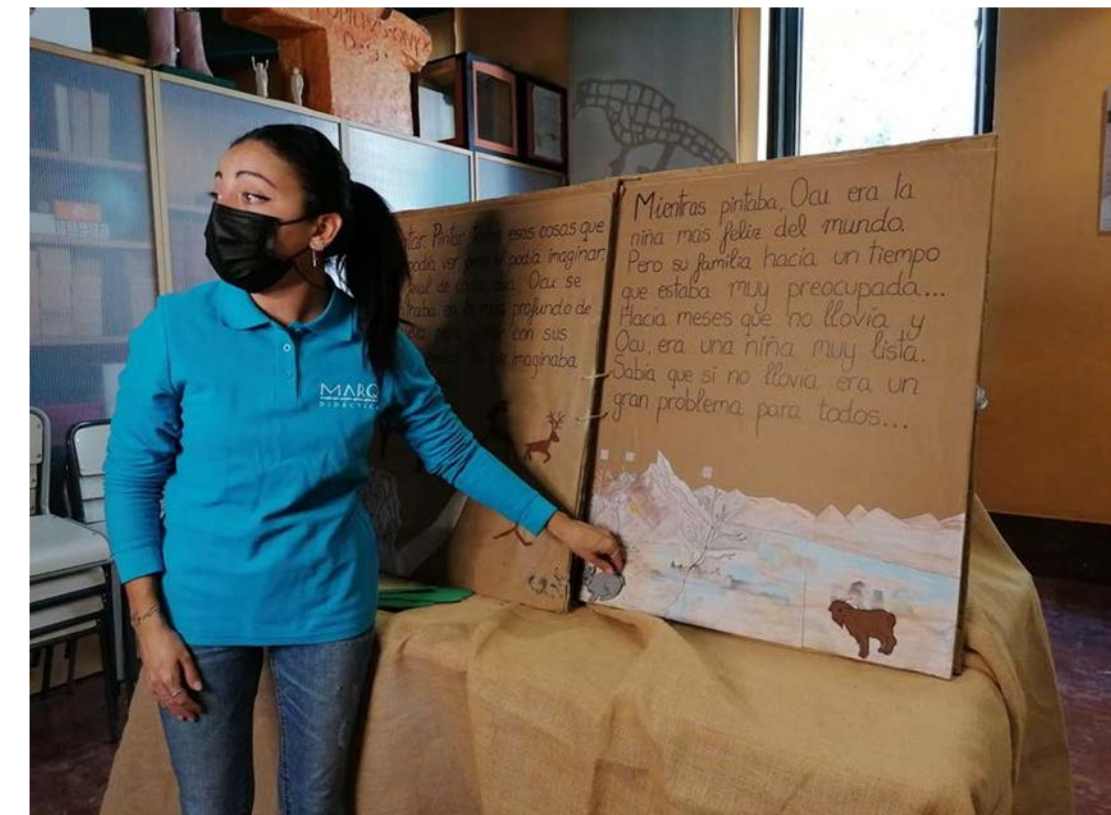 MARQ
DIDACTICA
tar. Pintar todas esas cosas que
podía ver pero sí podía imaginar.
al de cada día. Ocu se
en lo más profundo de
con sus
imaginaba
Mientras pintaba, Ocu era la
niña más feliz del mundo.
Pero su familia hacía un tiempo
que estaba muy preocupada...
Hacía meses que no llovía y
Ocu, era una niña muy lista.
Sabía que si no llovía era un
gran problema para todos...